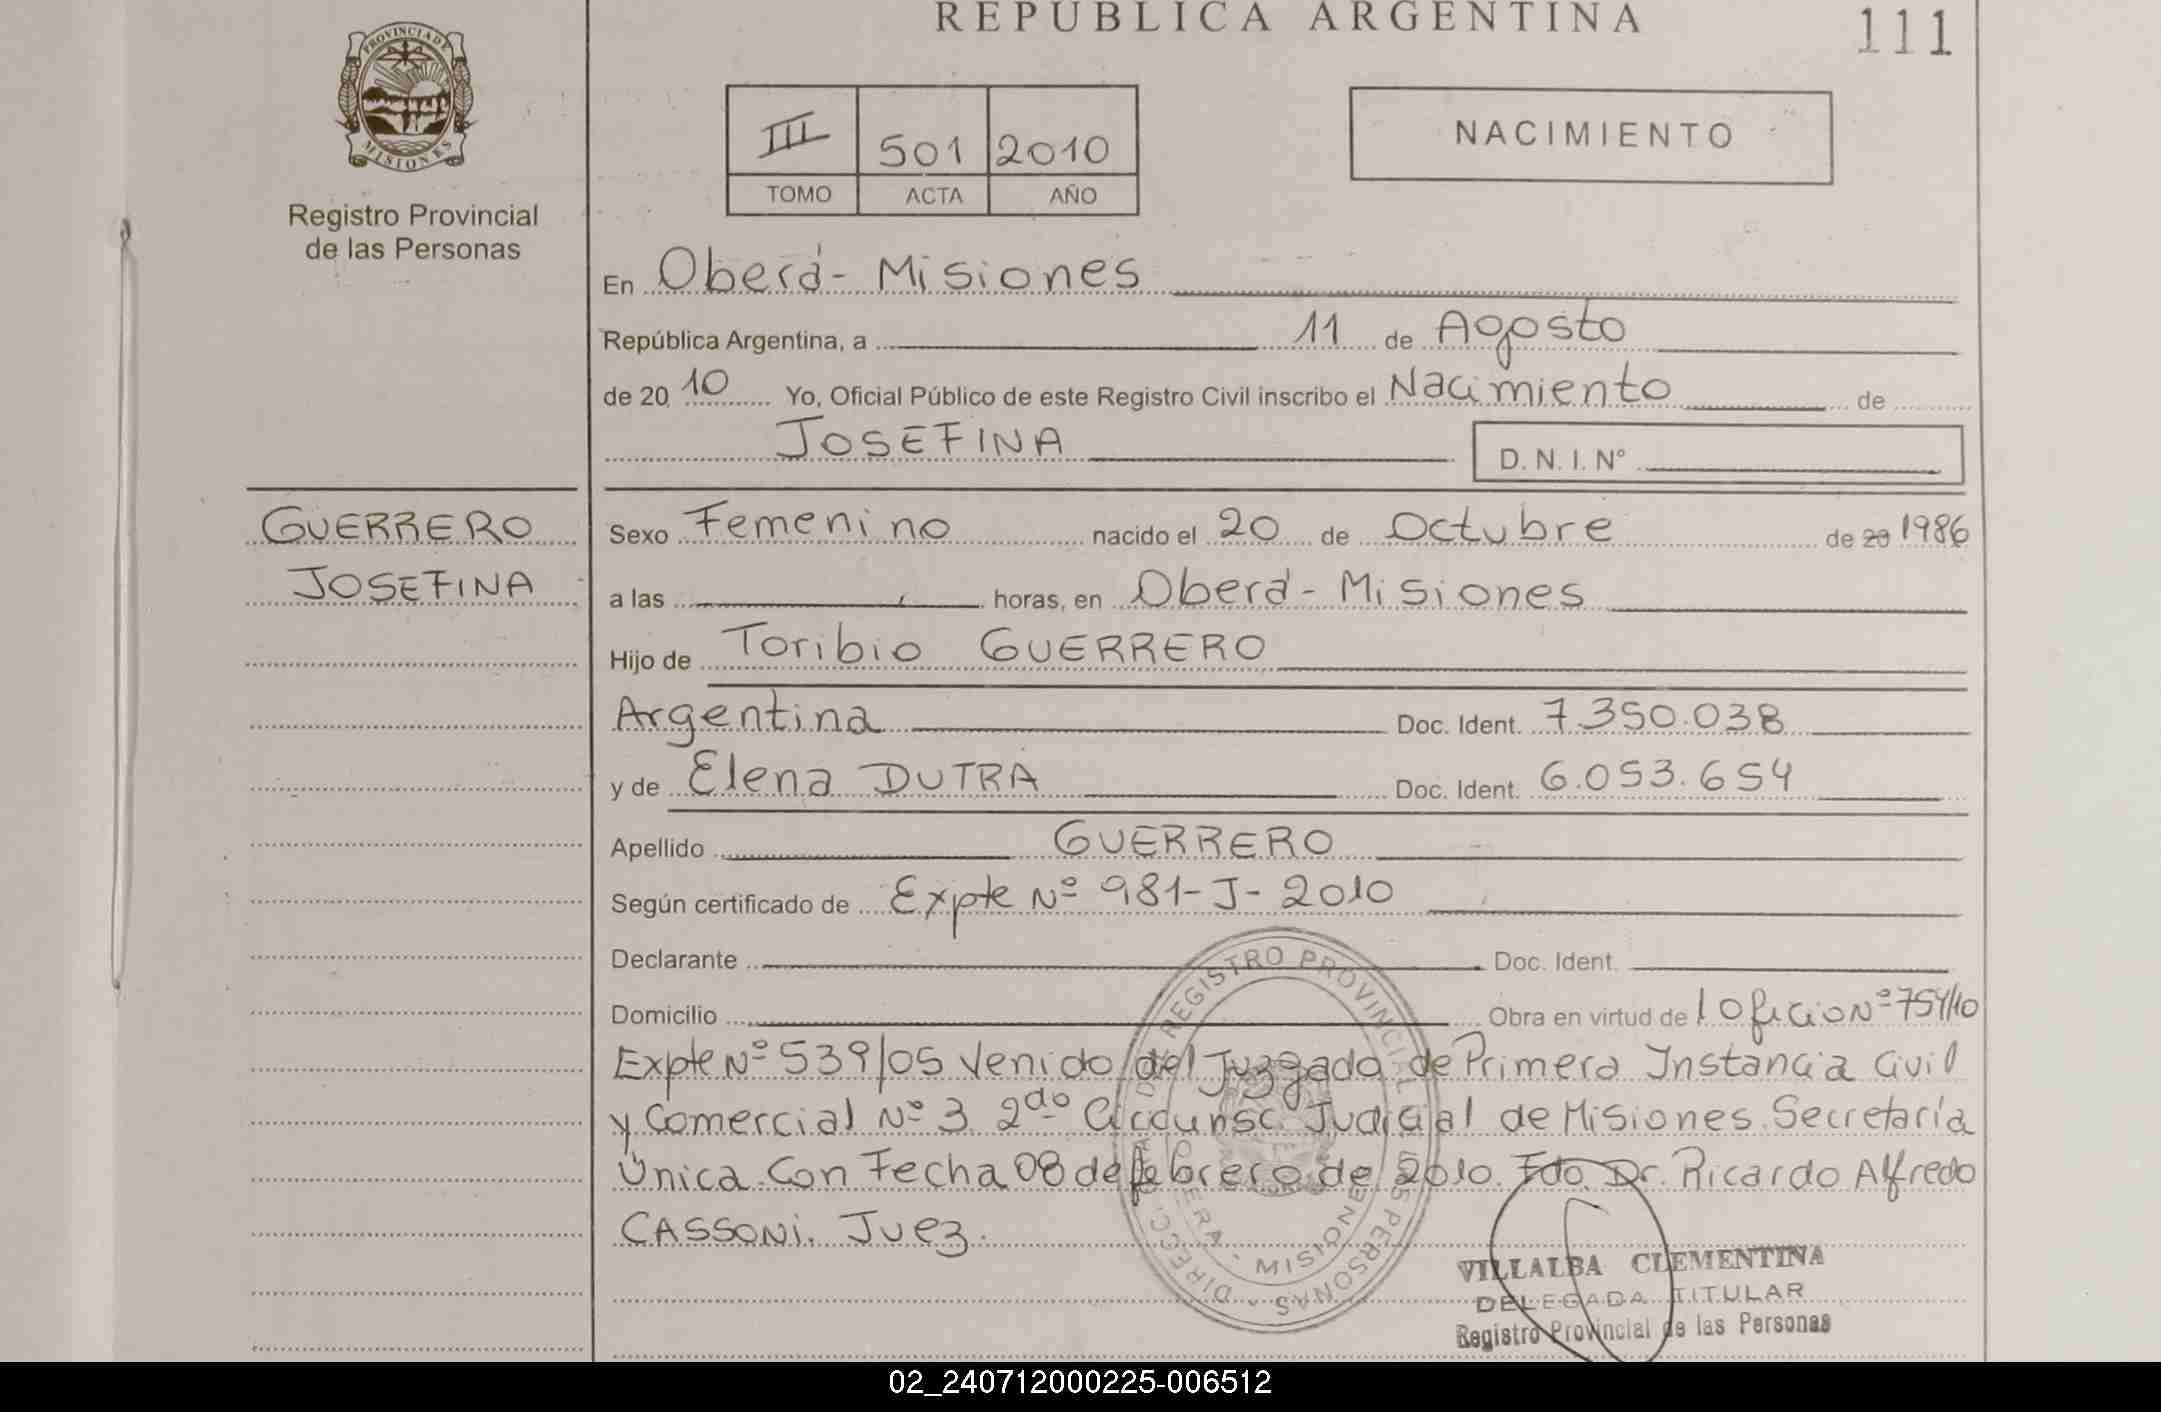 REPUBLICA ARGENTINA
111
PROVINCIA DE
MISIONES
Registro Provincial
de las Personas
III 501 2010
TOMO ACTA AÑO
NACIMIENTO
En Oberá - Misiones
República Argentina, a 11 de Agosto
de 2010 Yo, Oficial Público de este Registro Civil inscribo el Nacimiento de
JOSEFINA D. N. I. Nº
GUERRERO
JOSEFINA
Sexo Femenino nacido el 20 de Octubre de 20 1986
a las horas, en Oberá - Misiones
Hijo de Toribio GUERRERO
Argentina Doc. Ident. 7.350.038
y de Elena DUTRA Doc. Ident. 6.053.654
Apellido GUERRERO
Según certificado de Expte Nº 981-J-2010
Declarante Doc. Ident.
Domicilio Obra en virtud de Oficio Nº 754/10
Expte Nº 539/05 Venido del Juzgado de Primera Instancia Civil
y Comercial Nº 3 2do Circunsc Judicial de Misiones. Secretaría
Única. Con Fecha 08 de febrero de 2010. Fdo. Dr. Ricardo Alfredo
CASSONI. Juez.
REGISTRO PROVINCIAL DE LAS PERSONAS
MISIONES
VILLALBA CLEMENTINA
DELEGADA TITULAR
Registro Provincial de las Personas
02_240712000225-006512